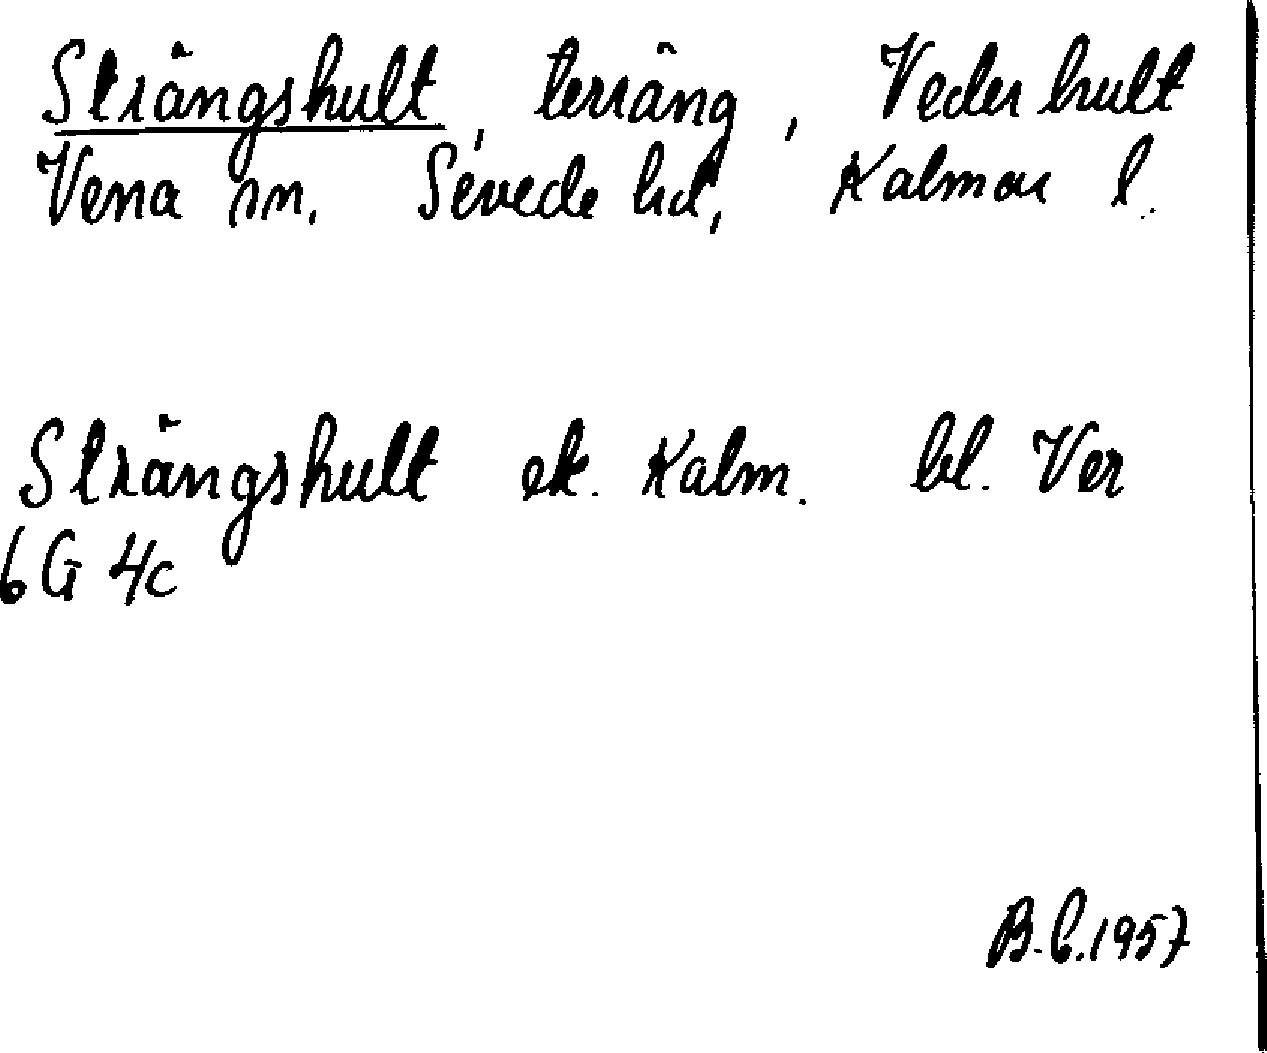 Strängshult, terräng, Vederhult
Vena sn. Sevede hd, Kalmar l.
Strängshult ek. Kalm. bl. Ver
6G 4c
B.C. 1957